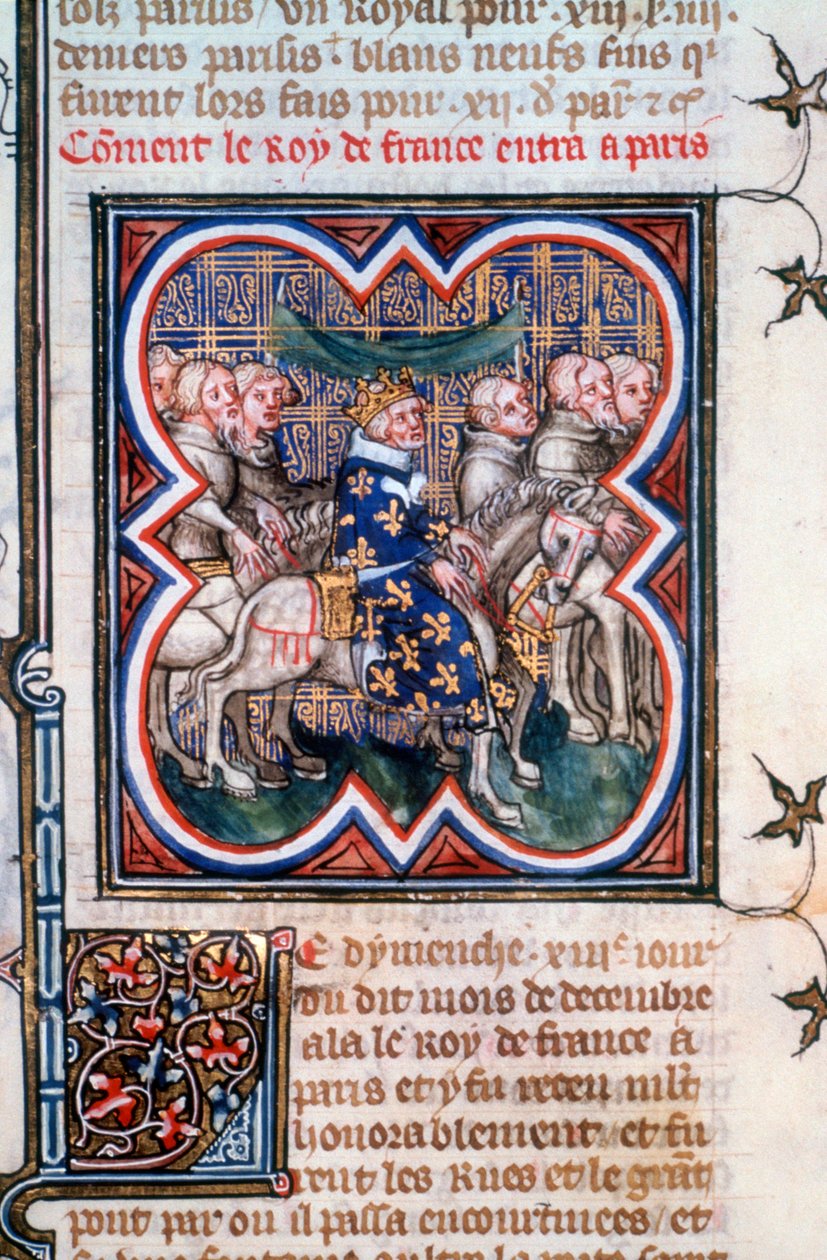 solz parisis / Un Royal pour .xiii.s. iiii.
deniers parisis. blans neufs fins qi
furent lors fais pour .xii. d' par' ⁊ c
Cōment le Roy de france entra a paris
Le dymenche .xiiie. iour
du dit mois de decembre
ala le Roy de france a
paris et y fu receu mlt'
honorablement. et fu
rent les Rues et le grāt
pont par ou il passa encourtinees / et